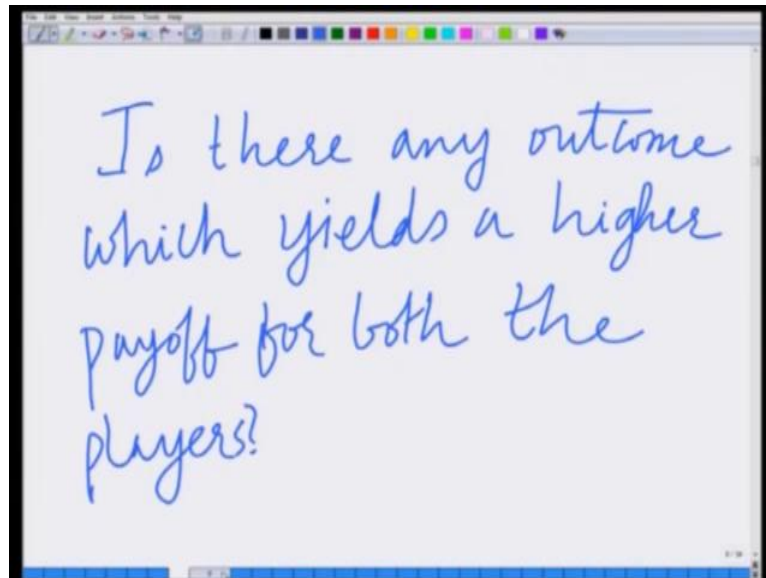 File Edit View Insert Actions Tools Help
Is there any outcome
which yields a higher
payoff for both the
players?